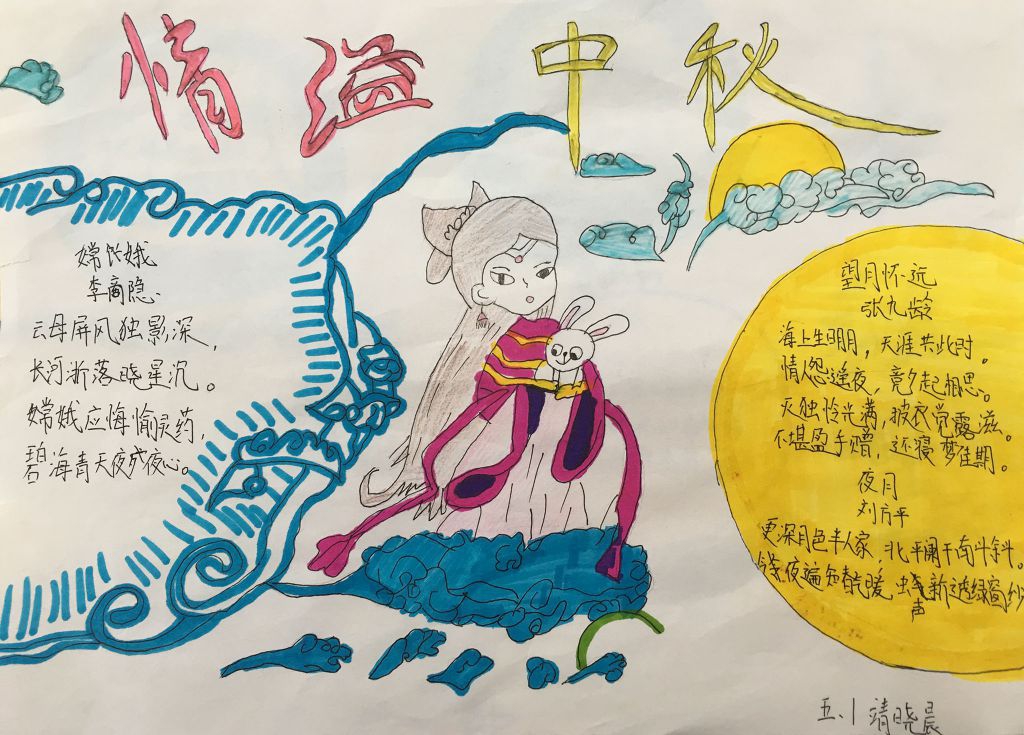 情溢中秋
嫦娥
李商隐
云母屏风独影深，
长河渐落晓星沉。
嫦娥应悔愉灵药，
碧海青天夜夜心。
望月怀远
张九龄
海上生明月，天涯共此时。
情人怨遥夜，竟夕起相思。
灭烛怜光满，披衣觉露滋。
不堪盈手赠，还寝梦佳期。
夜月
刘方平
更深月色半人家，北平阑干南斗斜。
今夜偏知春气暖，虫声新透绿窗纱
五.1 靖晓晨